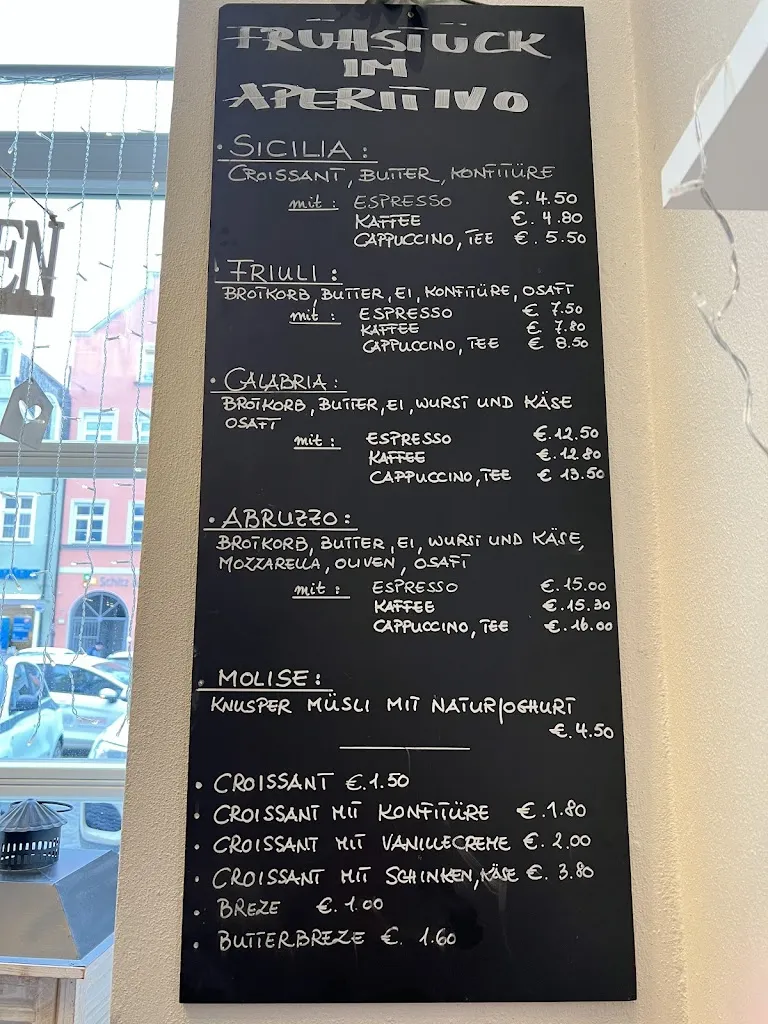 FRÜHSTÜCK
IM
APERITIVO
• SICILIA:
CROISSANT, BUTTER, KONFITÜRE
mit: ESPRESSO €. 4.50
KAFFEE €. 4.80
CAPPUCCINO, TEE €. 5.50
• FRIULI:
BROTKORB, BUTTER, EI, KONFITÜRE, OSAFT
mit: ESPRESSO € 7.50
KAFFEE €. 7.80
CAPPUCCINO, TEE € 8.50
• CALABRIA:
BROTKORB, BUTTER, EI, WURST UND KÄSE
OSAFT
mit: ESPRESSO €.12.50
KAFFEE €. 12.80
CAPPUCCINO, TEE € 13.50
• ABRUZZO:
BROTKORB, BUTTER, EI, WURST UND KÄSE,
MOZZARELLA, OLIVEN, OSAFT
mit: ESPRESSO €.15.00
KAFFEE €.15.30
CAPPUCCINO, TEE €.16.00
• MOLISE:
KNUSPER MÜSLI MIT NATURJOGHURT
€.4.50
• CROISSANT €.1.50
• CROISSANT MIT KONFITÜRE €.1.80
• CROISSANT MIT VANILLECREME €. 2.00
• CROISSANT MIT SCHINKEN, KÄSE €. 3.80
• BREZE €. 1.00
• BUTTERBREZE €. 1.60
EN